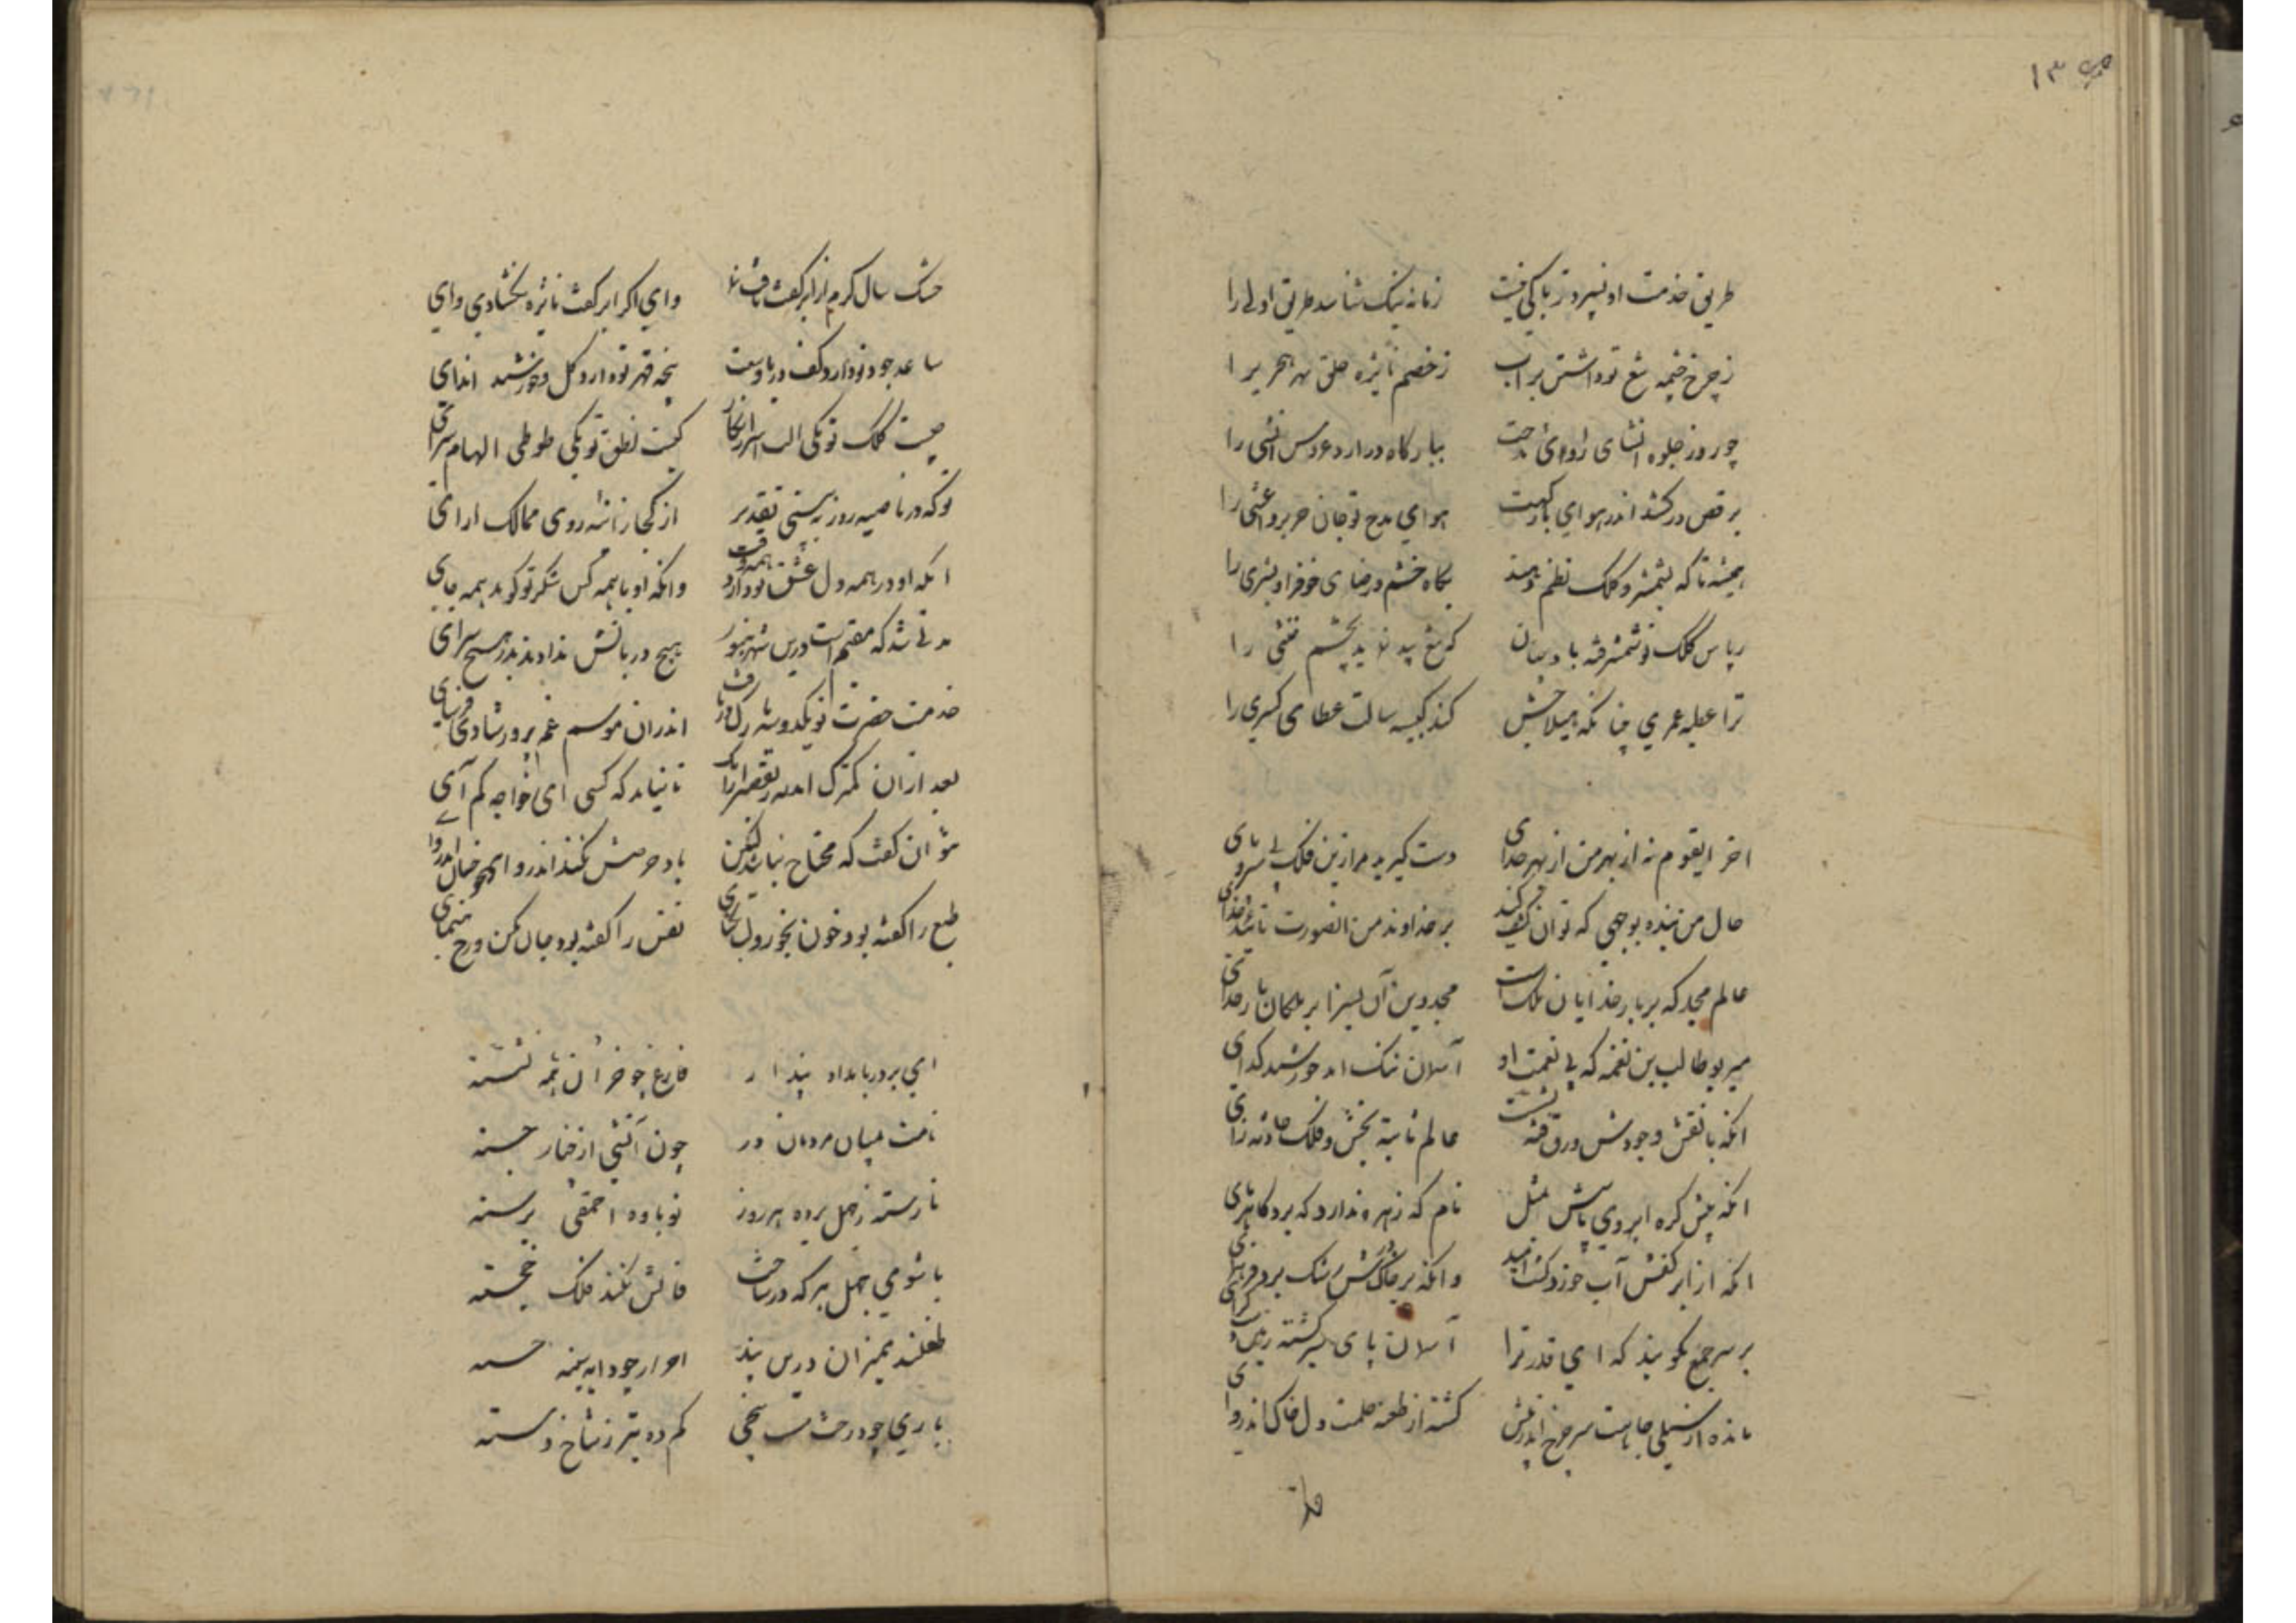 ص ۱۳
طریق خدمت او نسپرد زبان کی نیت زمانه نیک شناسد طریق اولی را
ز چرخ چشمه تیغ تو داشتن پر آب ز خصم نایژه حلق بهر مجری را
چو روز جلوه انشای راوی مدحت ببارگاه درآرد عروس انشی را
برقص درکشد اندر هوای بارگهت هوای مدح تو جان جریر و اعشی را
همیشه تا که بشمشیر و کلک نظم دهند بگاه خشم و رضای خوف را و بشری را
ز پاس کلک و شمشیر فتنه باد چنان که تیغ بید نماید بچشم افعی را
ترا عطیه عمری چنانکه هیلاجش کند کبیسه سالت عطای کبری را
اخر ایقوم نه از بهر من از بهر خدای دست گیرید مرا زین فلک بی سر و پای
حال من بنده بوجهی که توان کشف کنید بر خداوند من انصورت تائید خدای
عالم مجد که بر بار خدایان ملک است مجد دین آن بسزا بر ملکان بار خدای
میر بوطالب بن نعمه که بی نعمت او آسمان تنک امد خورشید کدای
انکه با نقش وجودش ورق فتنه بشست عالم نایبه بخش و فلک حادثه زای
انکه پیش کره ابروی باسش بمثل نام که زهره ندارد که برد کاهربای
انکه از ابر کفش آب خورد کشت امید وانکه بر خاک درش رشک برد فر همای
بر سر جمع بکویند که ای قدر ترا آسمان پای سپر کشته زمین دست کرای
مانده از سیلی جاهت سر چرخ اندر پیش کشته از طعنه حلمت دل خاک اندروای
خشک سال کرم از ابر کفت یافت نما وای اکر ابر کفت نایژه نکشادی وای
ساعد جود تو دارد کف دریا وسعت پنجه قهر تو دارد کل خورشید اندای
چیست کلک تو یکی الت اسرار نکار کیست نطق تو یکی طوطی الهام سرای
توکه در ناصیه روز به بینی تقدیر از کجا ز آینه روی ممالک ارای
انکه او در همه دل عشق تو دارد همه وقت وانکه او با همه کس شکر تو کوید همه جای
مدتی شد که مقیم است درین شهر هنوز هیچ دربانش نداد بدر هیچ سرای
خدمت حضرت تو یکدو سه بارک دریافت اندران موسم غم پرور شادی فرسای
بعد ازان کمترک امد به تقصیر انک تا نباید که کسی ای خواجه کم آی
نتوان کفت که محتاج نباشد لیکن باد حرصش نکند اندروا همچو خسان اندروای
طبع را کفته بود خون بخور و لب مکشای نفس را کفته بود جان کن و رخ منمای
ای بر در بامداد پندار فارغ چو خران نشسته
نامت بمیان مردمان در چون آتشی از خیار جسته
نارسته ز جهل برده هر روز نوباوه احمقی برسته
با شومی جهل هر که در ساخت فالش نکند فلک خجسته
طفلند بمیزان درین بند احرار چو دایه سینه خسته
باری چو درخت مستحی کم ده بتر ز شاخ دسته